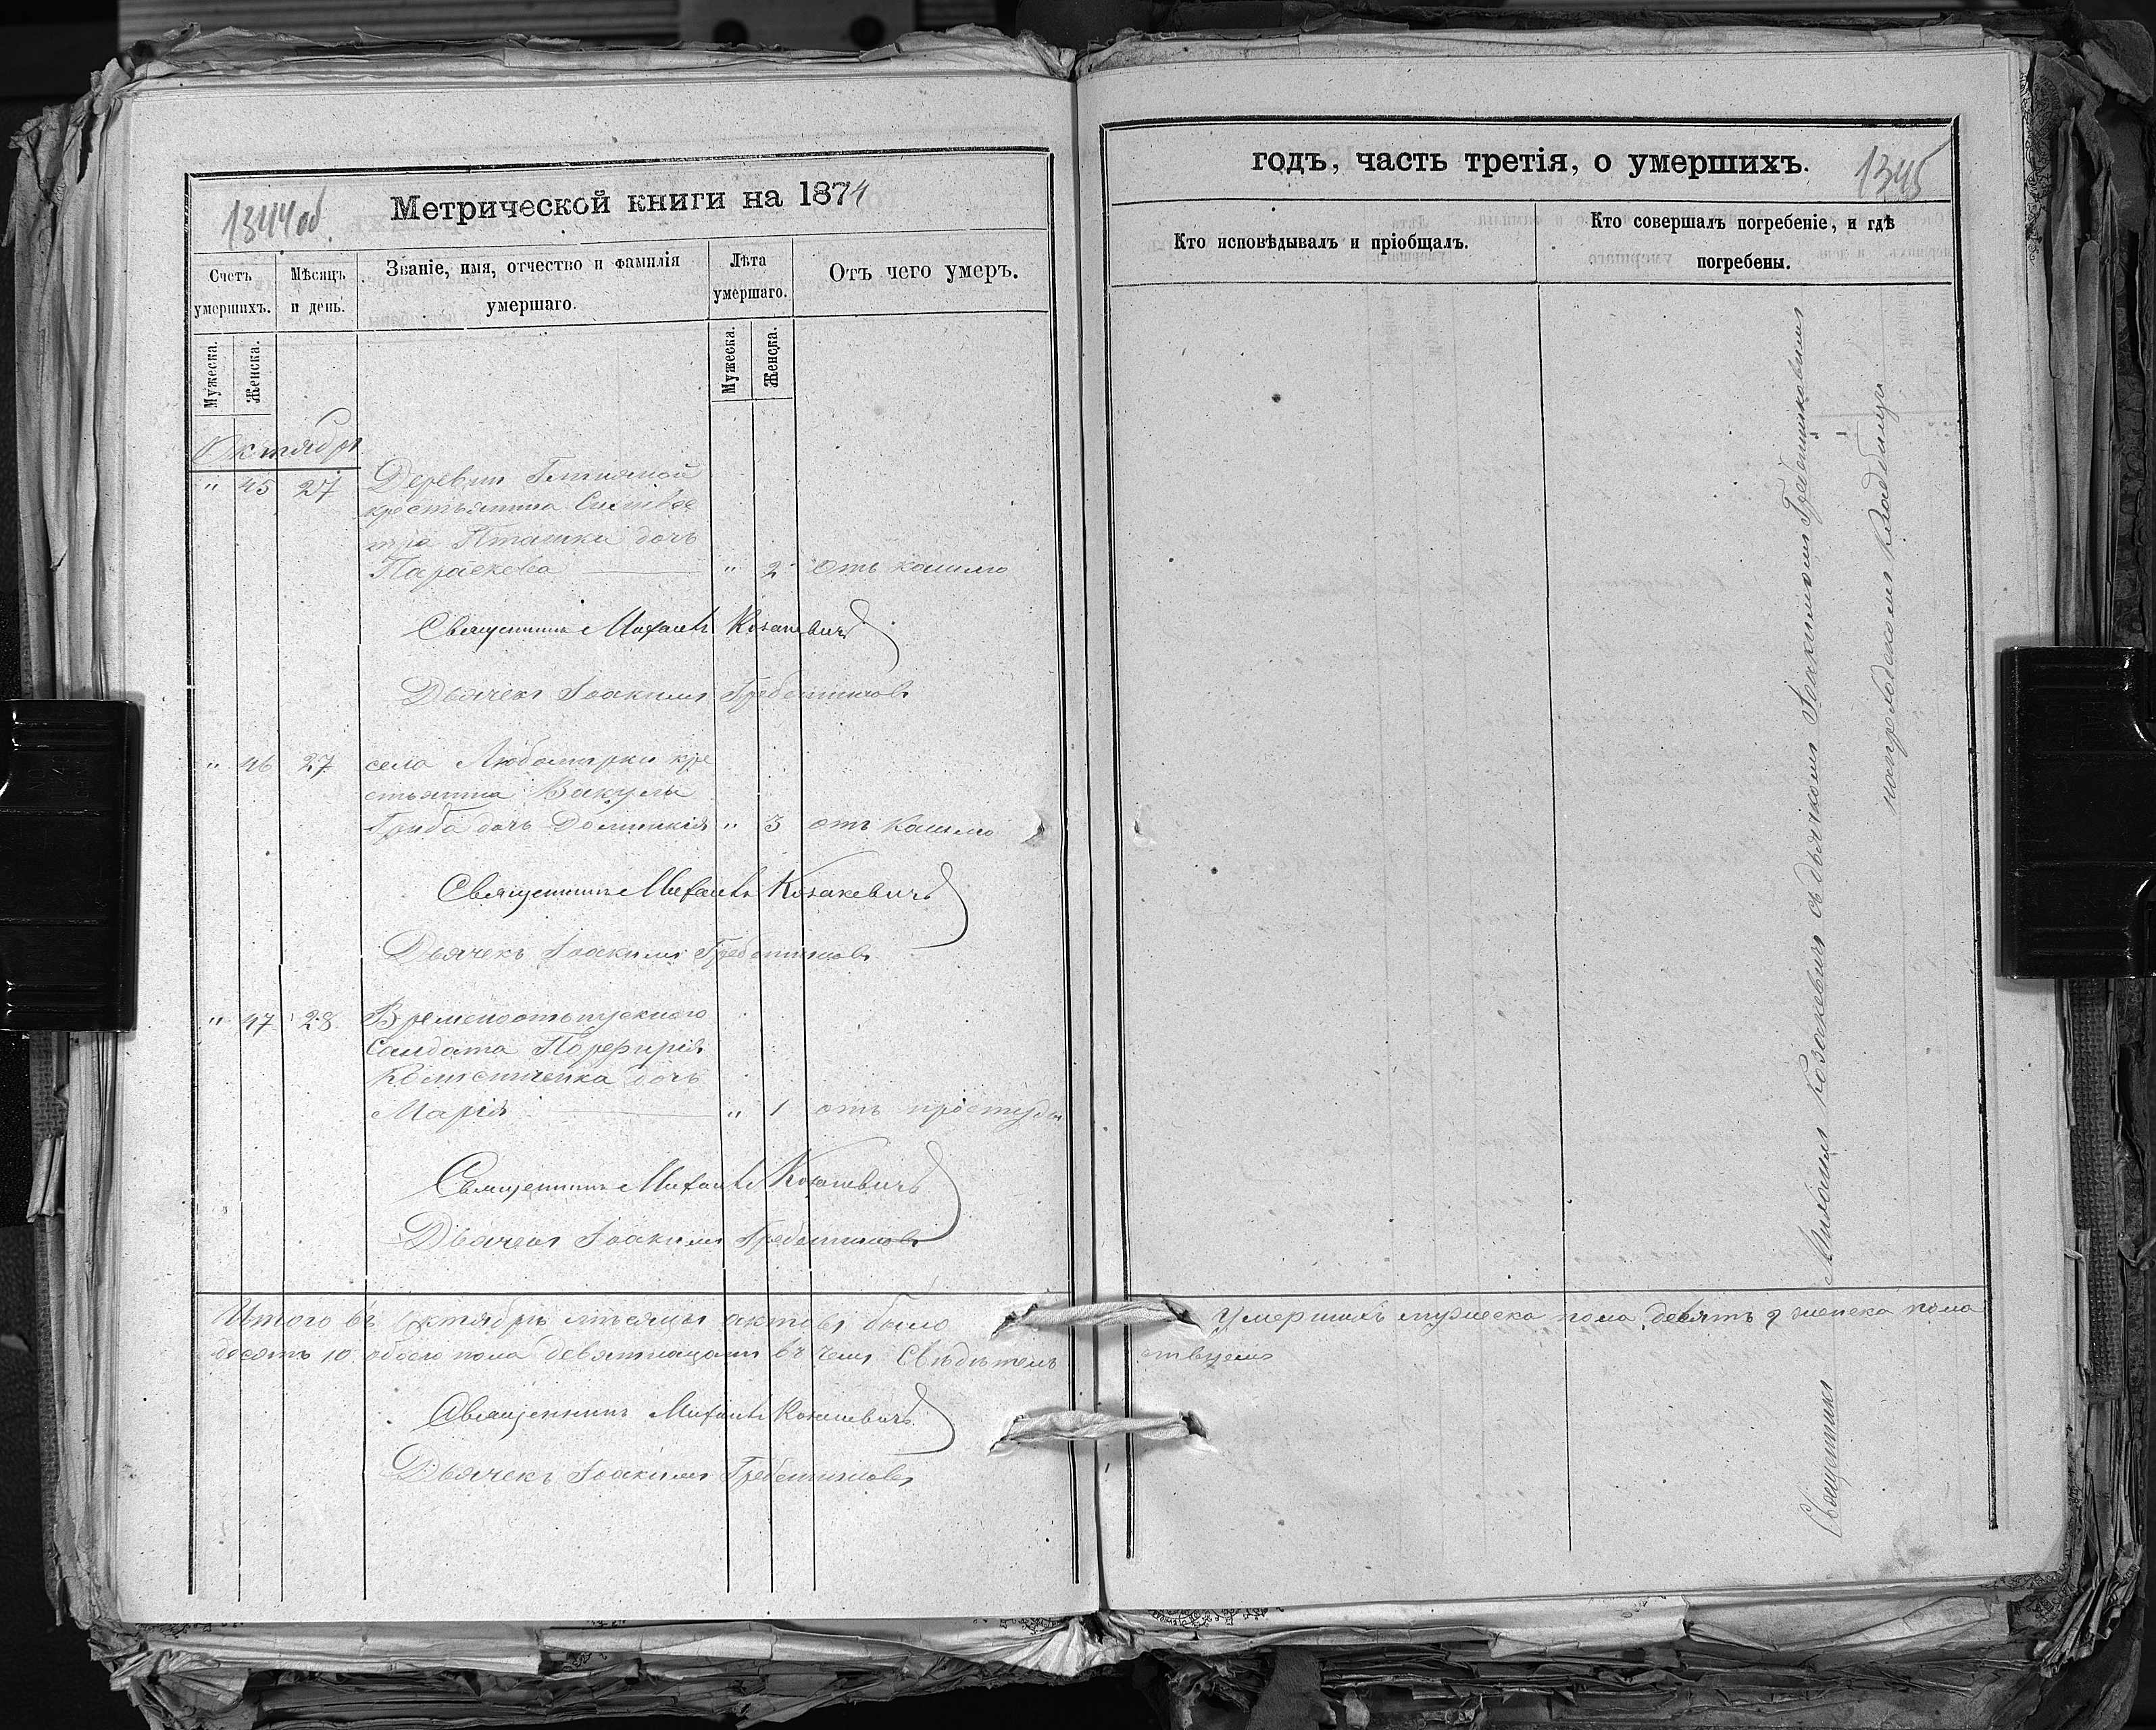 1344 об.
Метрической книги на 1874
Счетъ умершихъ.
Мѣсяцъ и день.
Званіе, имя, отчество и фамилія умершаго.
Лѣта умершаго.
Отъ чего умеръ.
Мужеска.
Женска.
Мужеска.
Женска.
Октябрь
" 45 27 Деревни
крестьянина
Пташки дочь
Параскева " 2 Отъ кашлю
Священникъ Михаилъ Козакевичъ
Дьячекъ Іоакимъ Гребенниковъ
" 46 27 села Любомирки кре
стьянина Вакулы
Гриба дочь Домникія " 3 отъ кашлю
Священникъ Михаилъ Козакевичъ
Дьячекъ Іоакимъ Гребенниковъ
" 47 28 Временоотпускного
Салдата Порфирія
дочь
Марія " 1 отъ простуды
Священникъ Михаилъ Козакевичъ
Дьячекъ Іоакимъ Гребенниковъ
Итого въ Октябрѣ мѣсяцѣ актовъ было
десять 10. обоего пола девятнацать въ чемъ Свидѣтель
Священникъ Михаилъ Козакевичъ
Дьячекъ Іоакимъ Гребенниковъ
годъ, часть третія, о умершихъ.
1345
Кто исповѣдывалъ и пріобщалъ.
Кто совершалъ погребеніе, и гдѣ
погребены.
Священникъ Михаилъ Козакевичъ съ дьячкомъ Іоакимомъ Гребенниковымъ
на приходскомъ кладбищѣ
Умершихъ мужеска пола девять 9 женска пола
ствуемъ